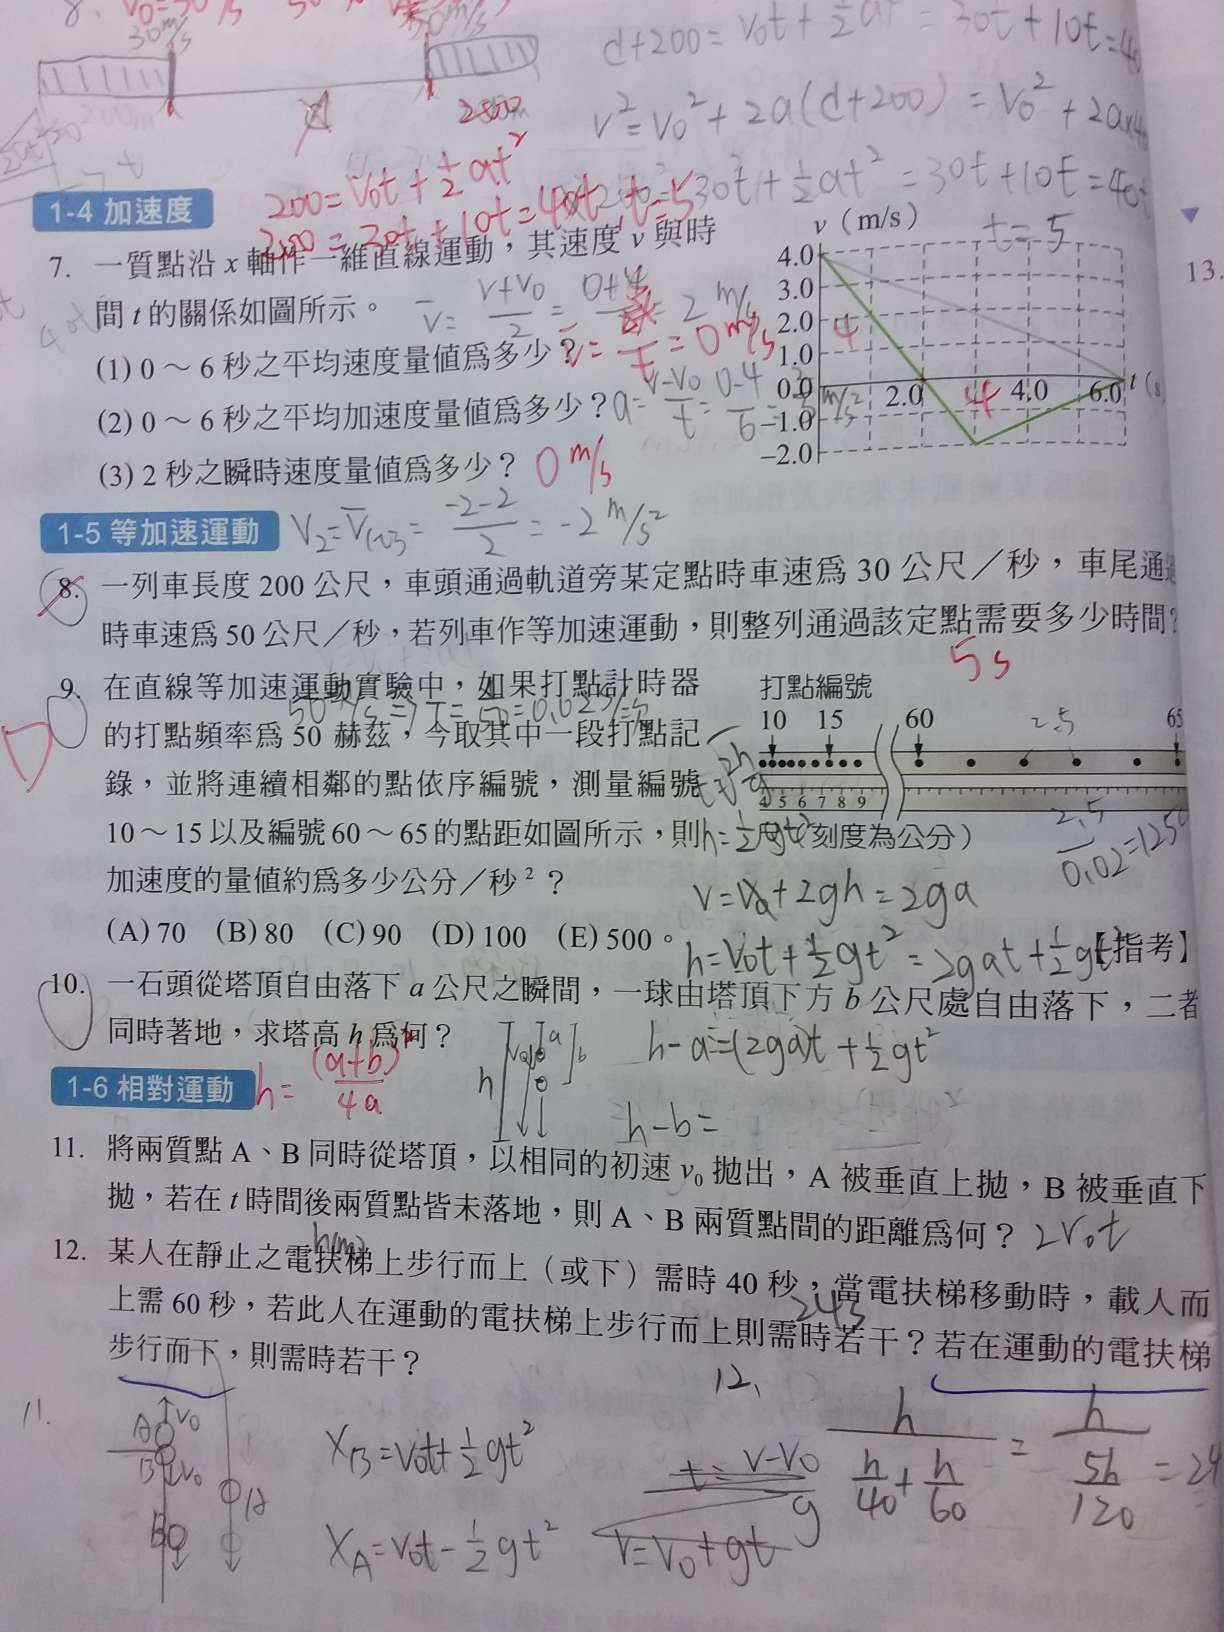 30m/s
200m
d+200=V₀t+½at²=30t+10t=40
V²=V₀²+2a(d+200)=V₀²+2a×4
200=V₀t+½at²
200=30t+10t=40t, t=5
30t+½at²=30t+10t=40t
t=5
1-4 加速度
7. 一質點沿 x 軸作一維直線運動，其速度 v 與時
間 t 的關係如圖所示。
(1) 0～6 秒之平均速度量值為多少？
=0 m/s
(2) 0～6 秒之平均加速度量值為多少？
a=V-V₀/t=0-4/6
(3) 2 秒之瞬時速度量值為多少？ 0 m/s
v（m/s）
4.0
3.0
2.0
1.0
0.0
-1.0
-2.0
2.0 4.0 6.0 t (s
4
4
1-5 等加速運動
V₂=V̄₁～₃=-2-2/2=-2 m/s²
8. 一列車長度 200 公尺，車頭通過軌道旁某定點時車速為 30 公尺／秒，車尾通過
時車速為 50 公尺／秒，若列車作等加速運動，則整列通過該定點需要多少時間？
5s
9. 在直線等加速運動實驗中，如果打點計時器
的打點頻率為 50 赫茲，今取其中一段打點記
錄，並將連續相鄰的點依序編號，測量編號
10～15 以及編號 60～65 的點距如圖所示，則
加速度的量值約為多少公分／秒²？
(A) 70 (B) 80 (C) 90 (D) 100 (E) 500。
【指考】
打點編號
10 15 60 65
2.5
4 5 6 7 8 9
刻度為公分）
2.5/0.02=125
h=½gt²
h=V₀t+½gt²=2gat+½gt²
10. 一石頭從塔頂自由落下 a 公尺之瞬間，一球由塔頂下方 b 公尺處自由落下，二者
同時著地，求塔高 h 為何？
h=(a+b)²/4a
h a b
h-a=(2ga)t+½gt²
h-b=
1-6 相對運動
11. 將兩質點 A、B 同時從塔頂，以相同的初速 v₀ 拋出，A 被垂直上拋，B 被垂直下
拋，若在 t 時間後兩質點皆未落地，則 A、B 兩質點間的距離為何？ 2V₀t
12. 某人在靜止之電扶梯上步行而上（或下）需時 40 秒，當電扶梯移動時，載人而
h(m)
上需 60 秒，若此人在運動的電扶梯上步行而上則需時若干？若在運動的電扶梯
24s
步行而下，則需時若干？
11.
A V₀
B V₀
B A
X_B=V₀t+½gt²
X_A=V₀t-½gt²
12.
t=V-V₀/g
V=V₀+gt
h/(h/40+h/60)=h/(5h/120)=24